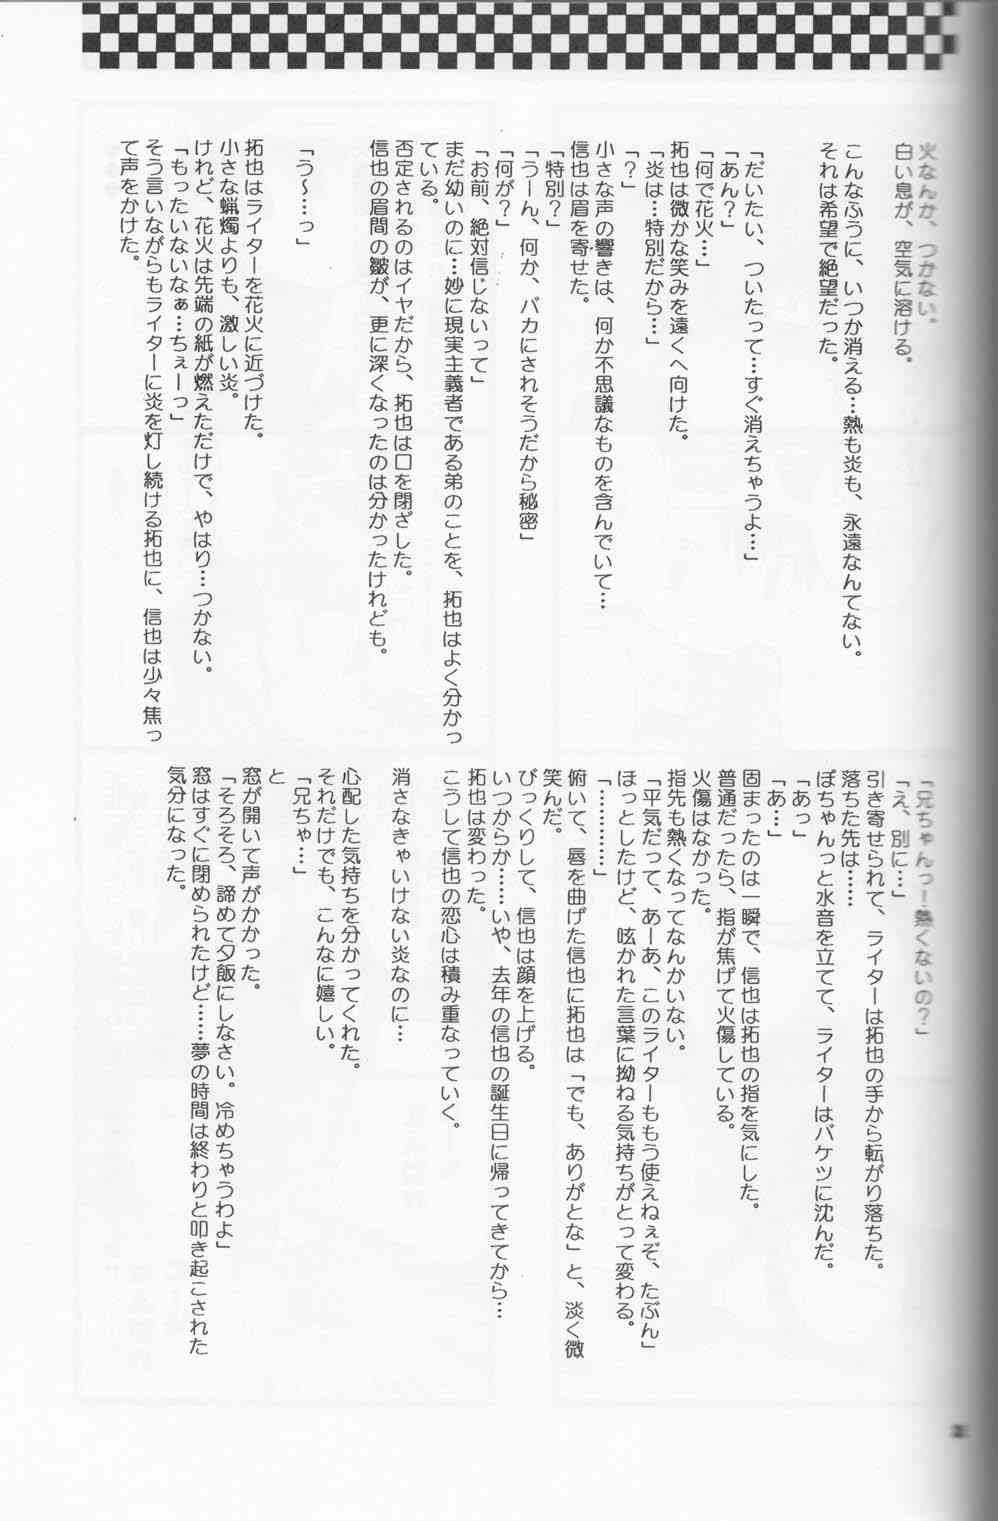 火なんか、つかない。
白い息が、空気に溶ける。
こんなふうに、いつか消える…熱も炎も、永遠なんてない。
それは希望で絶望だった。
「だいたい、ついたって…すぐ消えちゃうよ…」
「あん？」
「何で花火…」
拓也は微かな笑みを遠くへ向けた。
「炎は…特別だから…」
「？」
小さな声の響きは、何か不思議なものを含んでいて…
信也は眉を寄せた。
「特別？」
「うーん、何か、バカにされそうだから秘密」
「何が？」
「お前、絶対信じないって」
まだ幼いのに…妙に現実主義者である弟のことを、拓也はよく分かっ
ている。
否定されるのはイヤだから、拓也は口を閉ざした。
信也の眉間の皺が、更に深くなったのは分かったけれども。
「う～…っ」
拓也はライターを花火に近づけた。
小さな蝋燭よりも、激しい炎。
けれど、花火は先端の紙が燃えただけで、やはり…つかない。
「もったいないなぁ…ちぇーっ」
そう言いながらもライターに炎を灯し続ける拓也に、信也は少々焦っ
て声をかけた。
「兄ちゃんっ！熱くないの？」
「え、別に…」
引き寄せられて、ライターは拓也の手から転がり落ちた。
落ちた先は……
ぽちゃんっと水音を立てて、ライターはバケツに沈んだ。
「あっ」
「あ…」
固まったのは一瞬で、信也は拓也の指を気にした。
普通だったら、指が焦げて火傷している。
火傷はなかった。
指先も熱くなってなんかいない。
「平気だって、あーあ、このライターももう使えねぇぞ、たぶん」
ほっとしたけど、呟かれた言葉に拗ねる気持ちがとって変わる。
「…………」
俯いて、唇を曲げた信也に拓也は「でも、ありがとな」と、淡く微
笑んだ。
びっくりして、信也は顔を上げる。
いつからか……いや、去年の信也の誕生日に帰ってきてから…
拓也は変わった。
こうして信也の恋心は積み重なっていく。
消さなきゃいけない炎なのに…
心配した気持ちを分かってくれた。
それだけでも、こんなに嬉しい。
「兄ちゃ…」
と
窓が開いて声がかかった。
「そろそろ、諦めて夕飯にしなさい。冷めちゃうわよ」
窓はすぐに閉められたけど……夢の時間は終わりと叩き起こされた
気分になった。